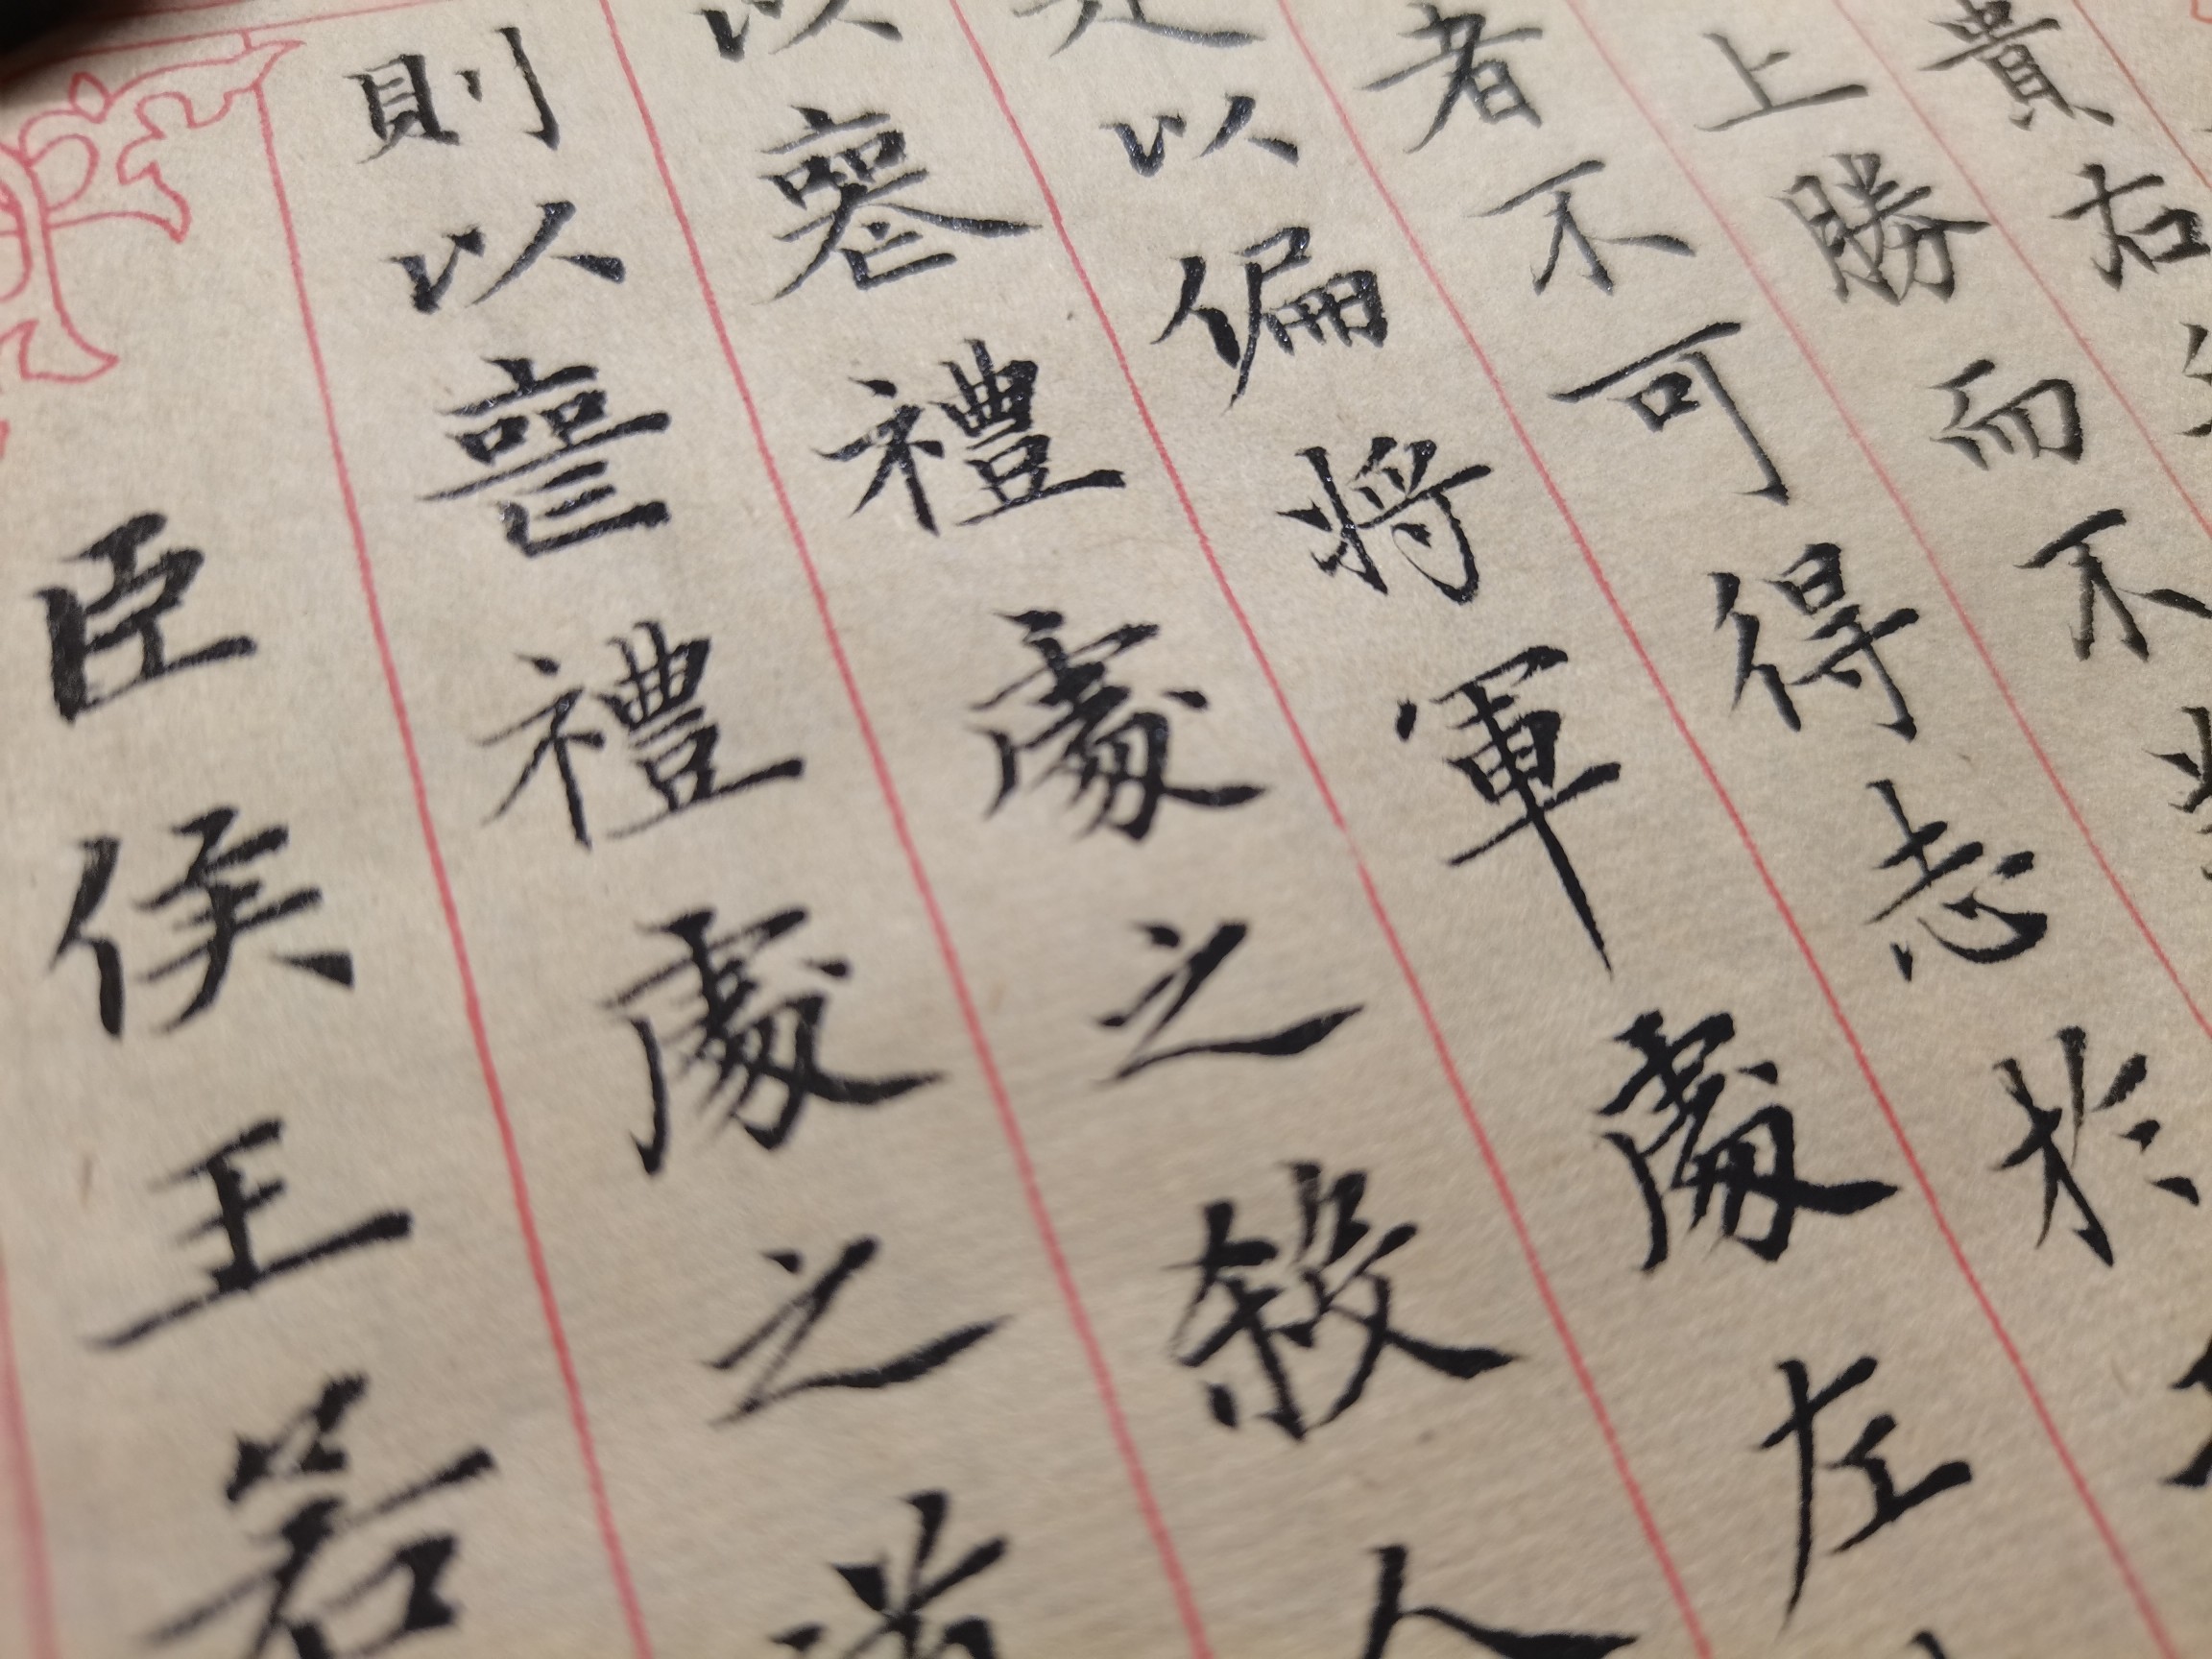 貴右
上勝而不
者不可得志於
以偏将軍處左
以喪禮處之殺人
則以喪禮處之
臣侯王若